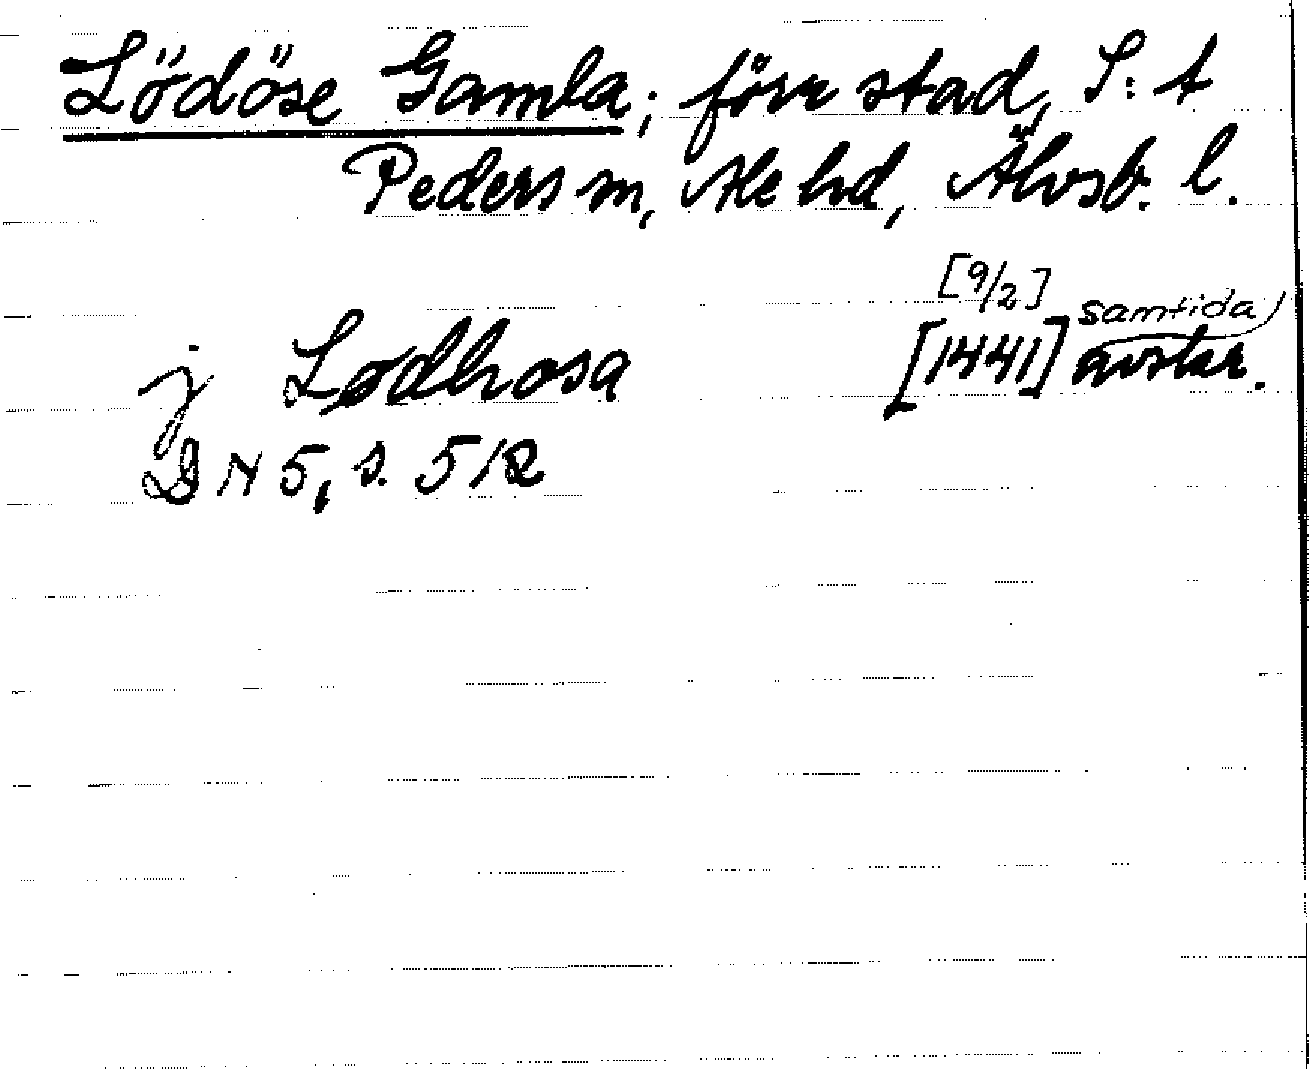 Lödöse Gamla; förr stad, S:t
Peders sn, Ale hd, Älvsb. l.
[9/2]
j Lødhosa [1441] samtida avskr.
DN 5, s. 512